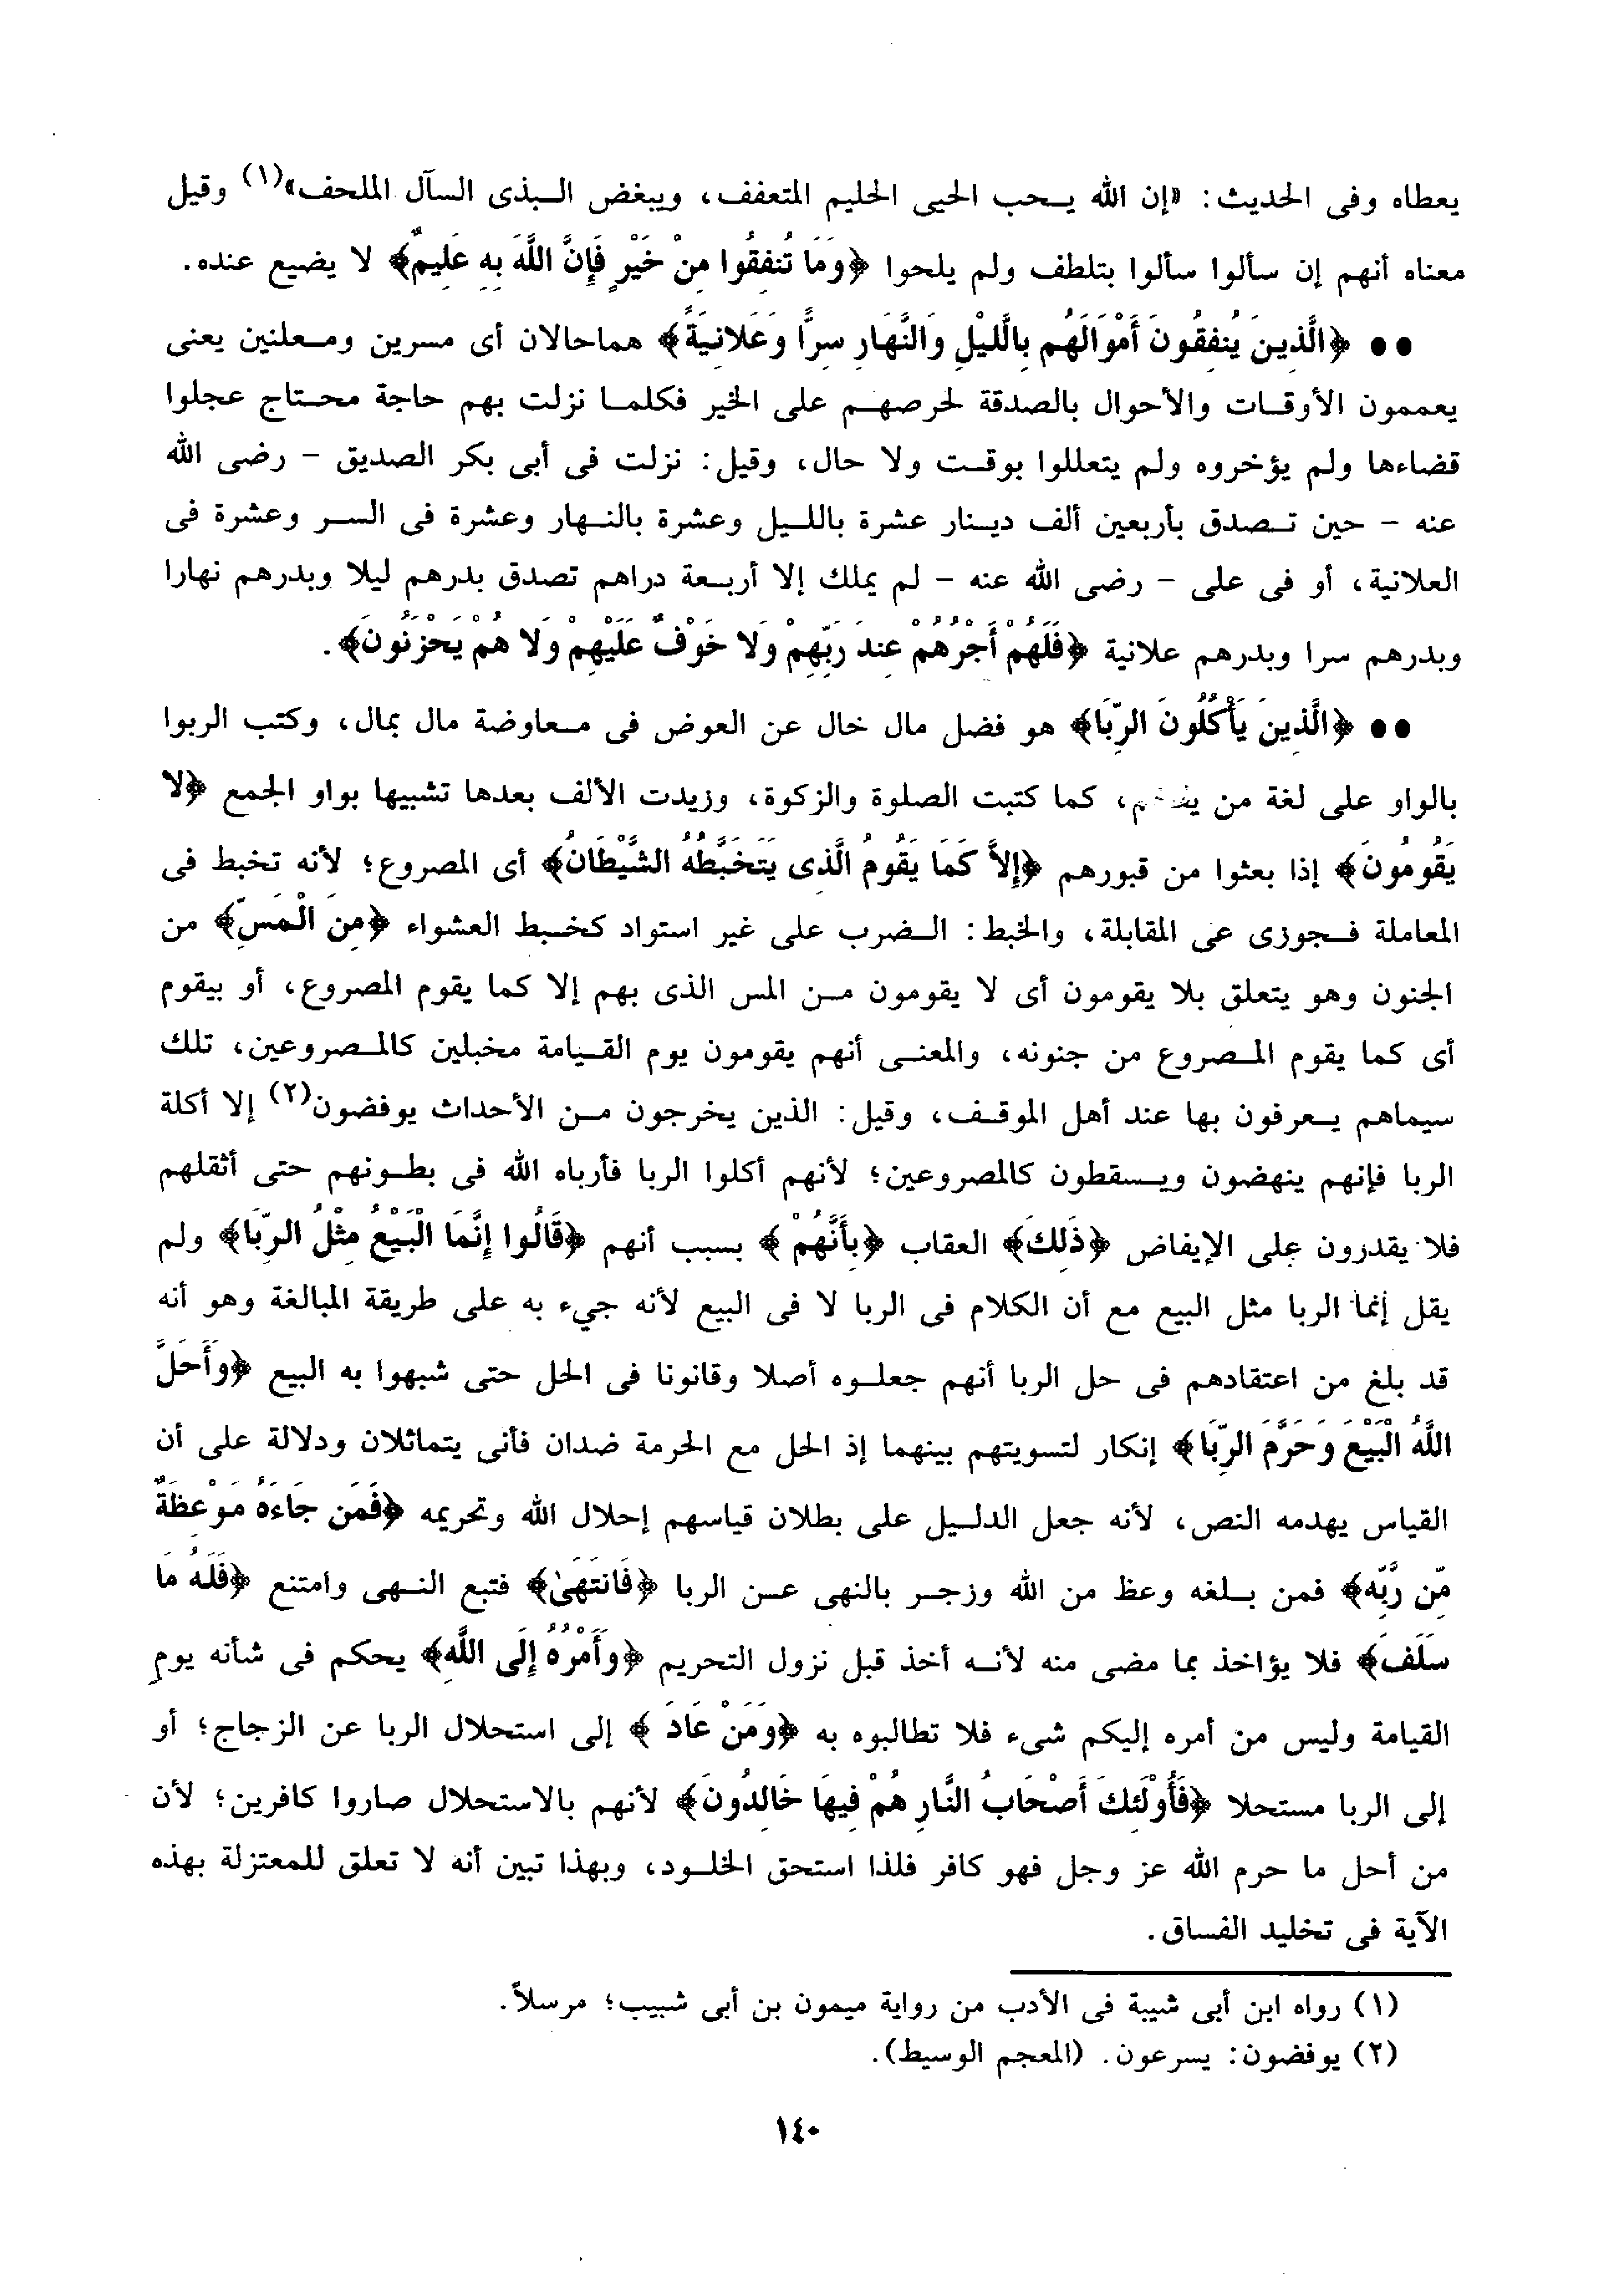 يعطاه وفى الحديث: «إن الله يحب الحيى الحليم المتعفف، ويبغض البذى السآل الملحف»(١) وقيل
معناه أنهم إن سألوا سألوا بتلطف ولم يلحوا ﴿وَمَا تُنفِقُوا مِنْ خَيْرٍ فَإِنَّ اللَّهَ بِهِ عَلِيمٌ﴾ لا يضيع عنده.
●● ﴿الَّذِينَ يُنفِقُونَ أَمْوَالَهُم بِاللَّيْلِ وَالنَّهَارِ سِرًّا وَعَلانِيَةً﴾ هماحالان أى مسرين ومعلنين يعنى
يعممون الأوقات والأحوال بالصدقة لحرصهم على الخير فكلما نزلت بهم حاجة محتاج عجلوا
قضاءها ولم يؤخروه ولم يتعللوا بوقت ولا حال، وقيل: نزلت فى أبى بكر الصديق - رضى الله
عنه - حين تصدق بأربعين ألف دينار عشرة بالليل وعشرة بالنهار وعشرة فى السر وعشرة فى
العلانية، أو فى على - رضى الله عنه - لم يملك إلا أربعة دراهم تصدق بدرهم ليلا وبدرهم نهارا
وبدرهم سرا وبدرهم علانية ﴿فَلَهُمْ أَجْرُهُمْ عِندَ رَبِّهِمْ وَلا خَوْفٌ عَلَيْهِمْ وَلا هُمْ يَحْزَنُونَ﴾.
●● ﴿الَّذِينَ يَأْكُلُونَ الرِّبَا﴾ هو فضل مال خال عن العوض فى معاوضة مال بمال، وكتب الربوا
بالواو على لغة من ، كما كتبت الصلوة والزكوة، وزيدت الألف بعدها تشبيها بواو الجمع ﴿لا
يَقُومُونَ﴾ إذا بعثوا من قبورهم ﴿إِلاَّ كَمَا يَقُومُ الَّذِى يَتَخَبَّطُهُ الشَّيْطَانُ﴾ أى المصروع؛ لأنه تخبط فى
المعاملة فجوزى عى المقابلة، والخبط: الضرب على غير استواد كخبط العشواء ﴿مِنَ الْمَسِّ﴾ من
الجنون وهو يتعلق بلا يقومون أى لا يقومون من المس الذى بهم إلا كما يقوم المصروع، أو بيقوم
أى كما يقوم المصروع من جنونه، والمعنى أنهم يقومون يوم القيامة مخبلين كالمصروعين، تلك
سيماهم يعرفون بها عند أهل الموقف، وقيل: الذين يخرجون من الأحداث يوفضون(٢) إلا أكلة
الربا فإنهم ينهضون ويسقطون كالمصروعين؛ لأنهم أكلوا الربا فأرباه الله فى بطونهم حتى أثقلهم
فلا يقدرون على الإيفاض ﴿ذَلِكَ﴾ العقاب ﴿بِأَنَّهُمْ﴾ بسبب أنهم ﴿قَالُوا إِنَّمَا الْبَيْعُ مِثْلُ الرِّبَا﴾ ولم
يقل إنما الربا مثل البيع مع أن الكلام فى الربا لا فى البيع لأنه جيء به على طريقة المبالغة وهو أنه
قد بلغ من اعتقادهم فى حل الربا أنهم جعلوه أصلا وقانونا فى الحل حتى شبهوا به البيع ﴿وَأَحَلَّ
اللَّهُ الْبَيْعَ وَحَرَّمَ الرِّبَا﴾ إنكار لتسويتهم بينهما إذ الحل مع الحرمة ضدان فأنى يتماثلان ودلالة على أن
القياس يهدمه النص، لأنه جعل الدليل على بطلان قياسهم إحلال الله وتحريمه ﴿فَمَن جَاءَهُ مَوْعِظَةٌ
مِّن رَّبِّهِ﴾ فمن بلغه وعظ من الله وزجر بالنهى عن الربا ﴿فَانتَهَىٰ﴾ فتبع النهى وامتنع ﴿فَلَهُ مَا
سَلَفَ﴾ فلا يؤاخذ بما مضى منه لأنه أخذ قبل نزول التحريم ﴿وَأَمْرُهُ إِلَى اللَّهِ﴾ يحكم فى شأنه يوم
القيامة وليس من أمره إليكم شىء فلا تطالبوه به ﴿وَمَنْ عَادَ﴾ إلى استحلال الربا عن الزجاج؛ أو
إلى الربا مستحلا ﴿فَأُوْلَئِكَ أَصْحَابُ النَّارِ هُمْ فِيهَا خَالِدُونَ﴾ لأنهم بالاستحلال صاروا كافرين؛ لأن
من أحل ما حرم الله عز وجل فهو كافر فلذا استحق الخلود، وبهذا تبين أنه لا تعلق للمعتزلة بهذه
الآية فى تخليد الفساق.
(١) رواه ابن أبى شيبة فى الأدب من رواية ميمون بن أبى شبيب؛ مرسلاً.
(٢) يوفضون: يسرعون. (المعجم الوسيط).
١٤٠